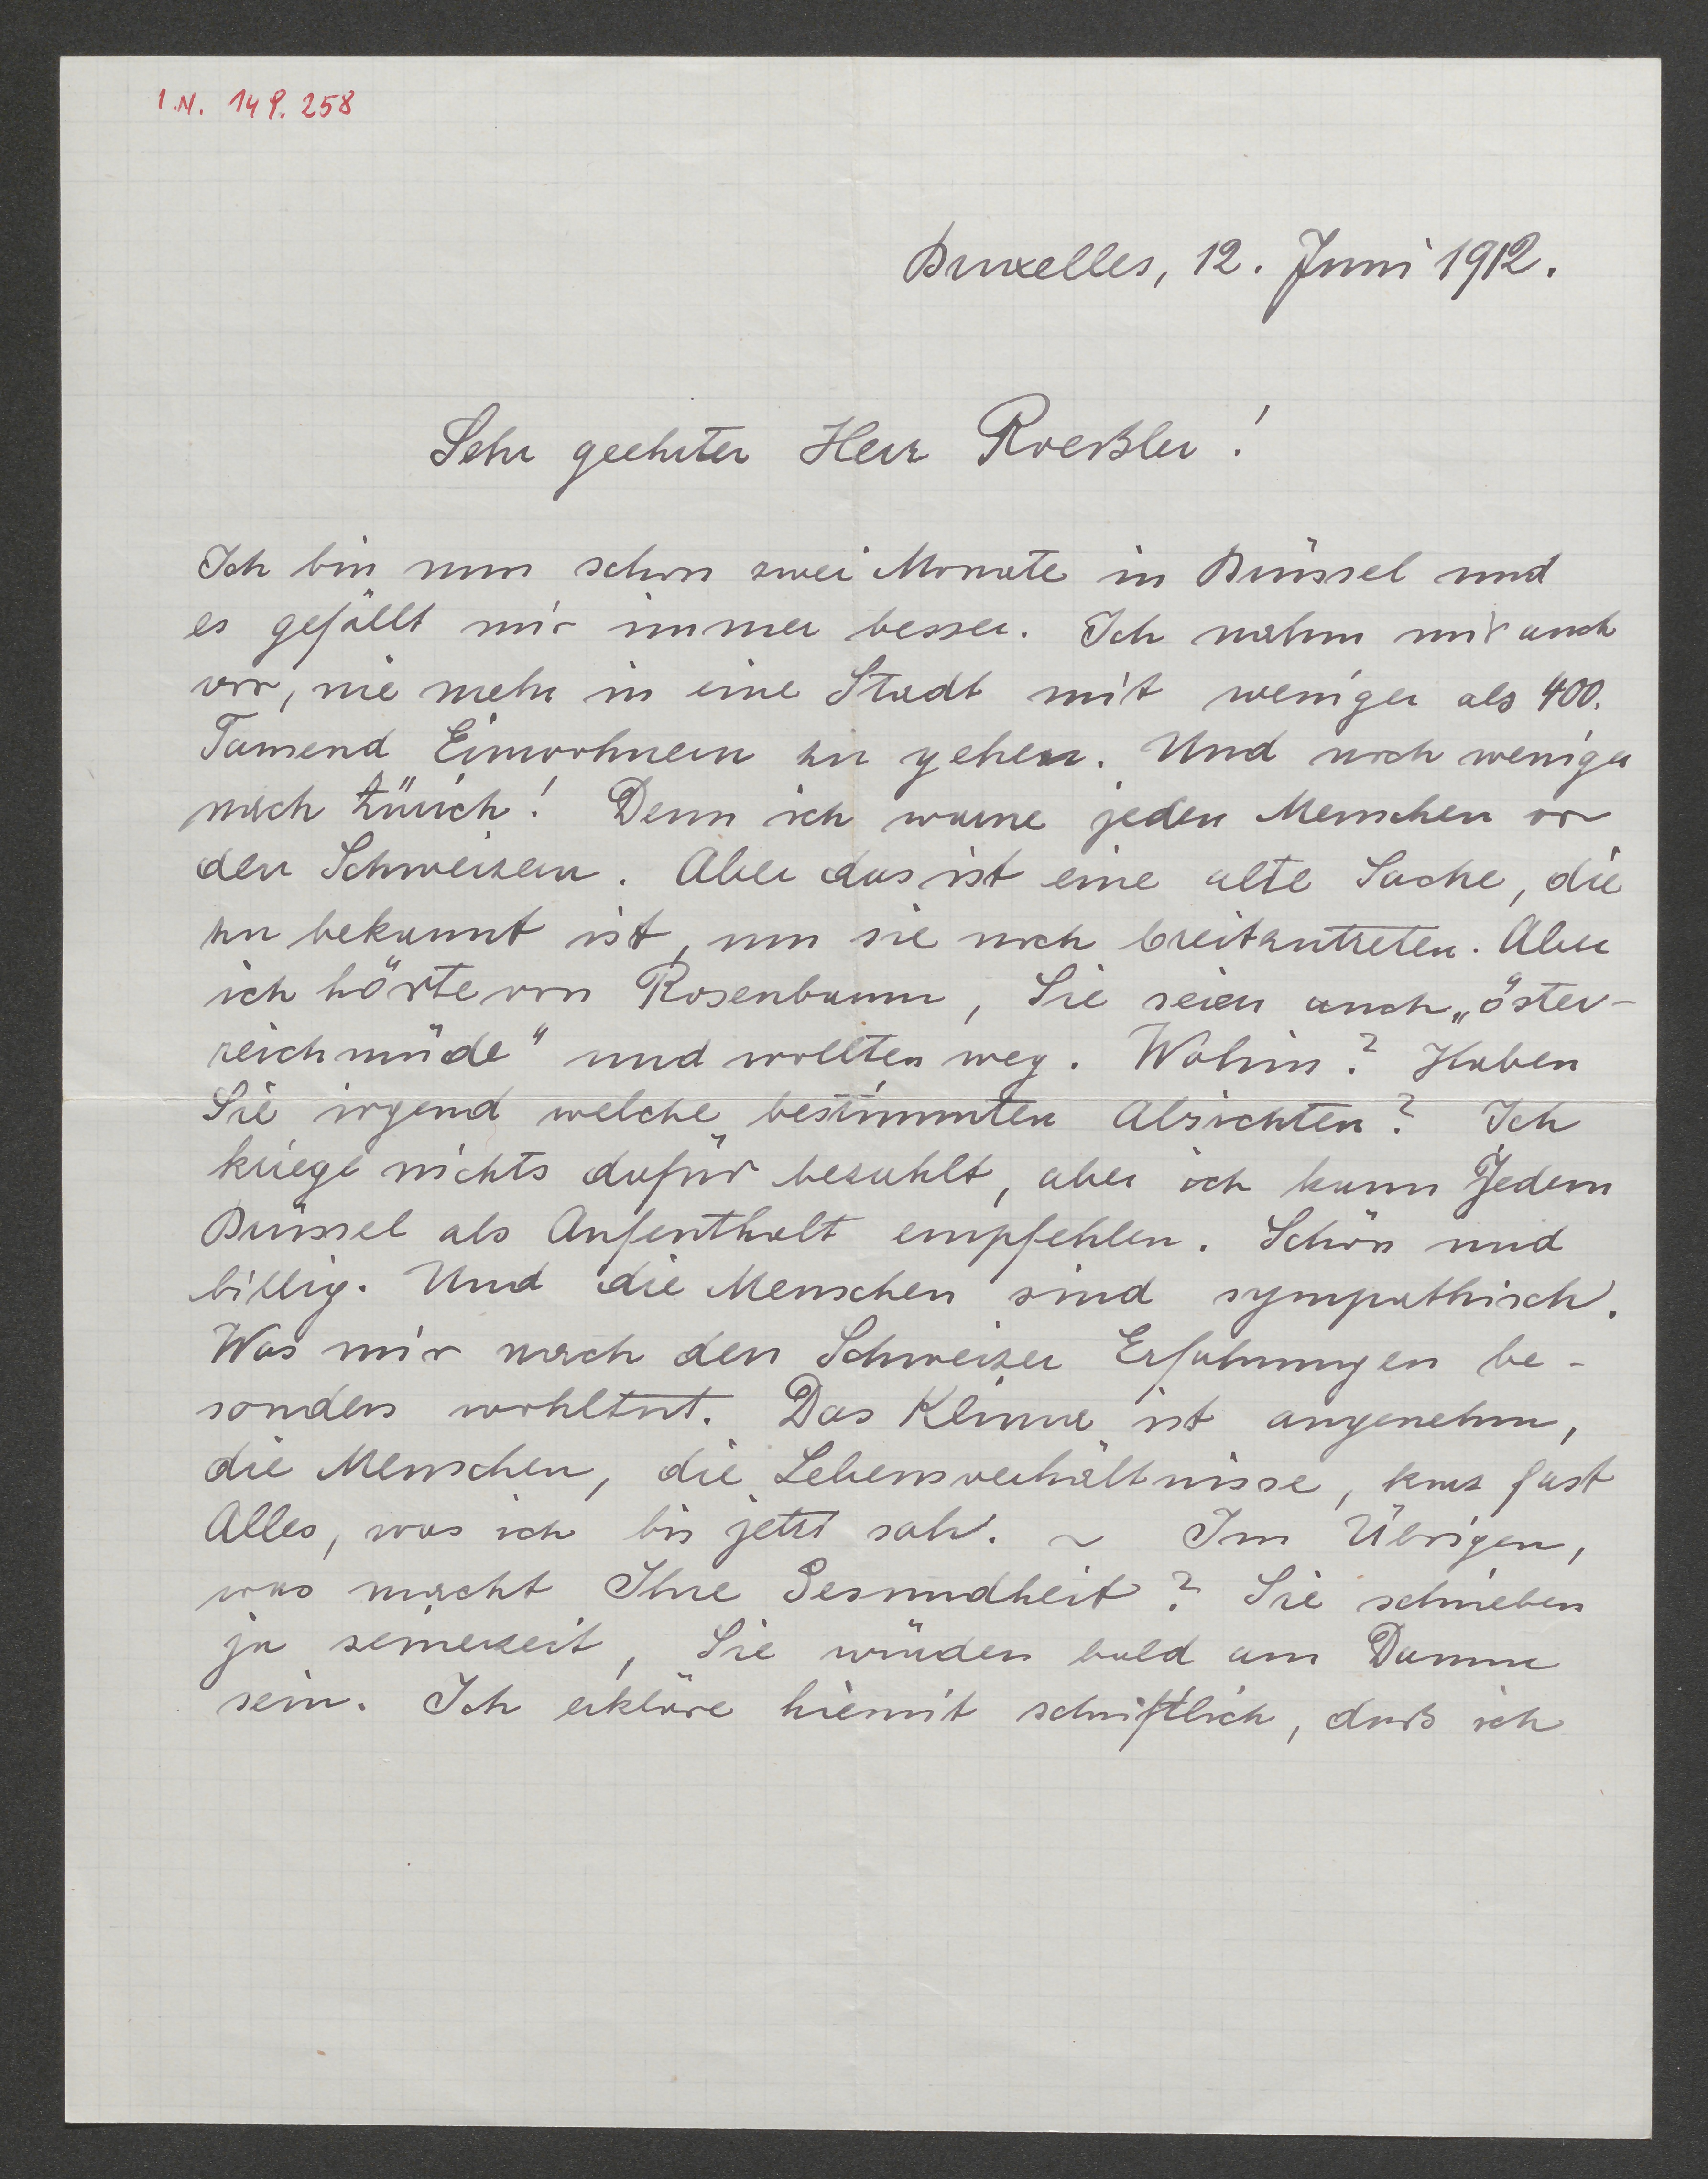 I.N. 149.258
Bruxelles, 12. Juni 1912.
Sehr geehrter Herr Roeßler!
Ich bin nun schon zwei Monate in Brüssel und
es gefällt mir immer besser. Ich nahm mir auch
vor, nie mehr in eine Stadt mit weniger als 400.
Tausend Einwohnern zu gehen. Und noch weniger
nach Zürich! Denn ich warne jeden Menschen vor
den Schweizern. Aber das ist eine alte Sache, die
zu bekannt ist, um sie noch breitzutreten. Aber
ich hörte von Rosenbaum, Sie seien auch „öster-
reichmüde" und wollten weg. Wohin? Haben
Sie irgend welche bestimmten Absichten? Ich
kriege nichts dafür bezahlt, aber ich kann Jedem
Brüssel als Aufenthalt empfehlen. Schön und
billig. Und die Menschen sind sympathisch.
Was mir nach den Schweizer Erfahrungen be-
sonders wohltut. Das Klima ist angenehm,
die Menschen, die Lebensverhältnisse, kurz fast
Alles, was ich bis jetzt sah. ~ Im Übrigen,
was macht Ihre Gesundheit? Sie schrieben
ja seinerzeit, Sie würden bald am Damm
sein. Ich erkläre hiemit schriftlich, daß ich